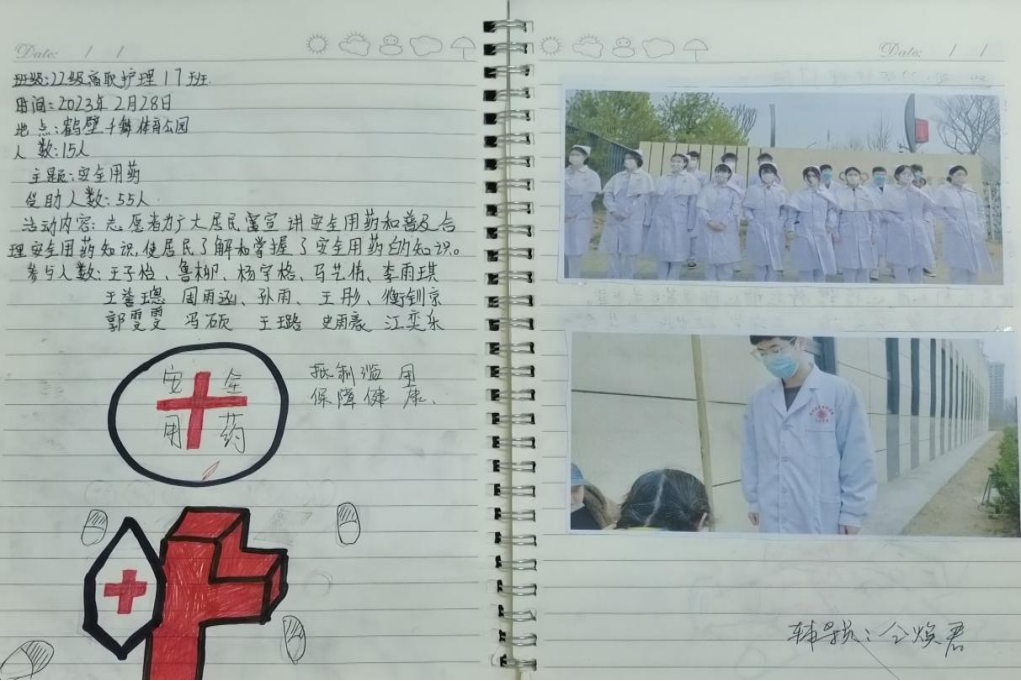 Date: / /
班级:22级高职护理17班
时间:2023年2月28日
地点:鹤壁千鹤体育公园
人数:15人
主题:安全用药
受助人数:55人
活动内容:志愿者为广大居民富宣讲安全用药和普及合
理安全用药知识,使居民了解和掌握了安全用药的知识。
参与人数:王子怡、鲁柳、杨宇格、马艺楠、李雨琪
王誉璁 周雨涵、孙雨、王彤、衡钊京
郭雯雯 冯硕 王璐 史雨豪 江奕乐
安全
用药
抵制滥用
保障健康、
Date: / /
辅导员:仝焕君